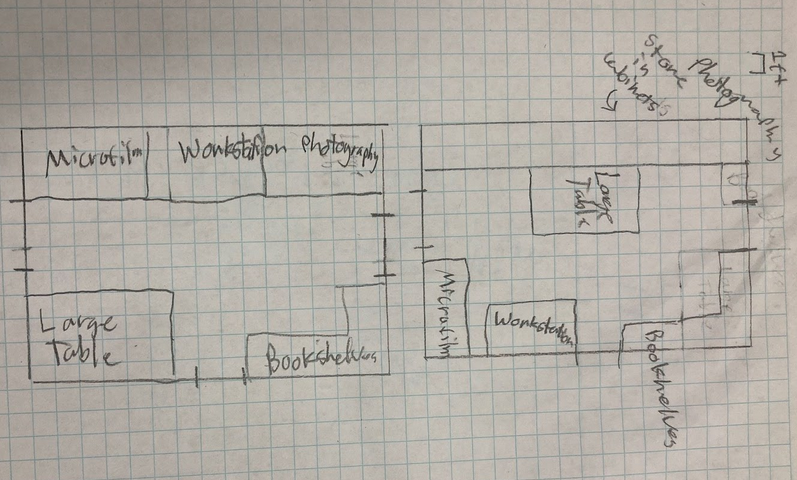 Microfilm
Workstation
Photography
Large
Table
Bookshelves
1ft
Store
in
cabinets
Photography
Large
Table
Microfilm
Workstation
Bookshelves